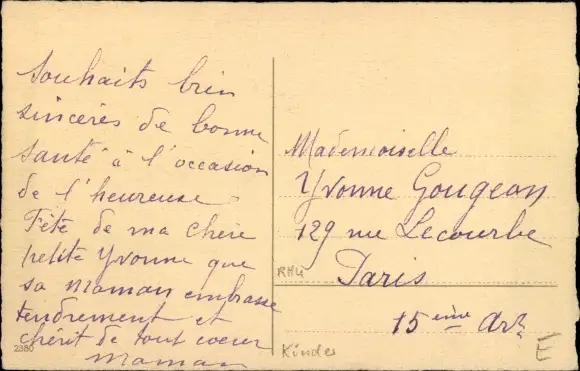 Souhaits bien
sincères de bonne
santé à l'occasion
de l'heureuse
Fête de ma chère
petite Yvonne que
sa maman embrasse
tendrement et
chérit de tout coeur
Maman
2380
Mademoiselle
Yvonne Gougeon
129 rue Lecourbe
Paris
15ème Arr
RHU
Kinder
E